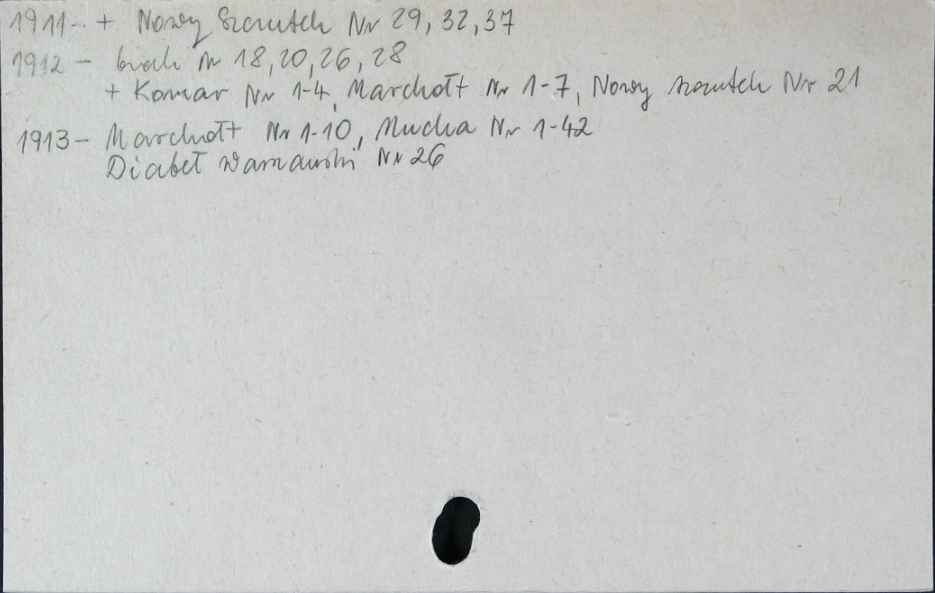 1911 - + Nowy Szczutek Nr 29, 32, 37
1912 - brak nr 18, 20, 26, 28
+ Komar Nr 1-4, Marchołt Nr 1-7, Nowy szczutek Nr 21
1913 - Marchołt Nr 1-10, Mucha Nr 1-42
Diabeł warszawski Nr 26